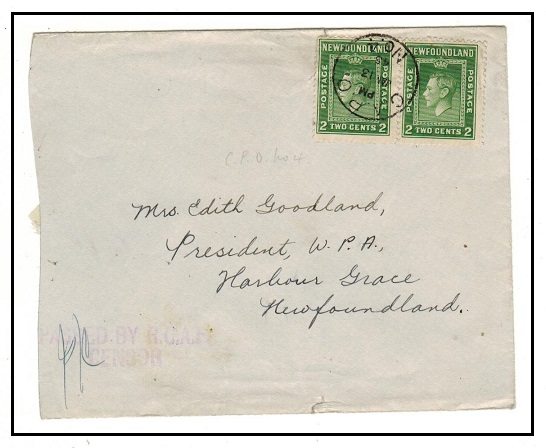 NEWFOUNDLAND NEWFOUNDLAND
POSTAGE POSTAGE POSTAGE POSTAGE
2 TWO CENTS 2 2 TWO CENTS 2
PM
13
Mrs. Edith Goodland,
President, W. P. A.,
Harbour Grace
Newfoundland.
PASSED BY
CENSOR